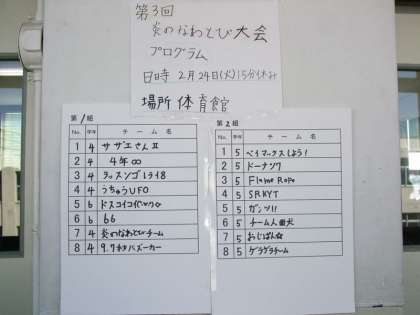 第3回
炎のなわとび大会
プログラム
日時 2月24日(火)15分休み
場所 体育館
第1組
No. 学年 チーム名
1 4 サザエさんⅡ
2 4 4年∞
3 4
4 4 うちゅうUFO
5 6
6 6 66
7 4 炎のなわとびチーム
8 4
第2組
No. 学年 チーム名
1 5 ベイマックスしよう!
2 5 ドーナツ7
3 5 Flame Rope
4 5 SRKYT
5 5 ガンツ!!
6 5 チーム人面犬
7 5 おじぱん☆
8 5 ゲラゲラチーム